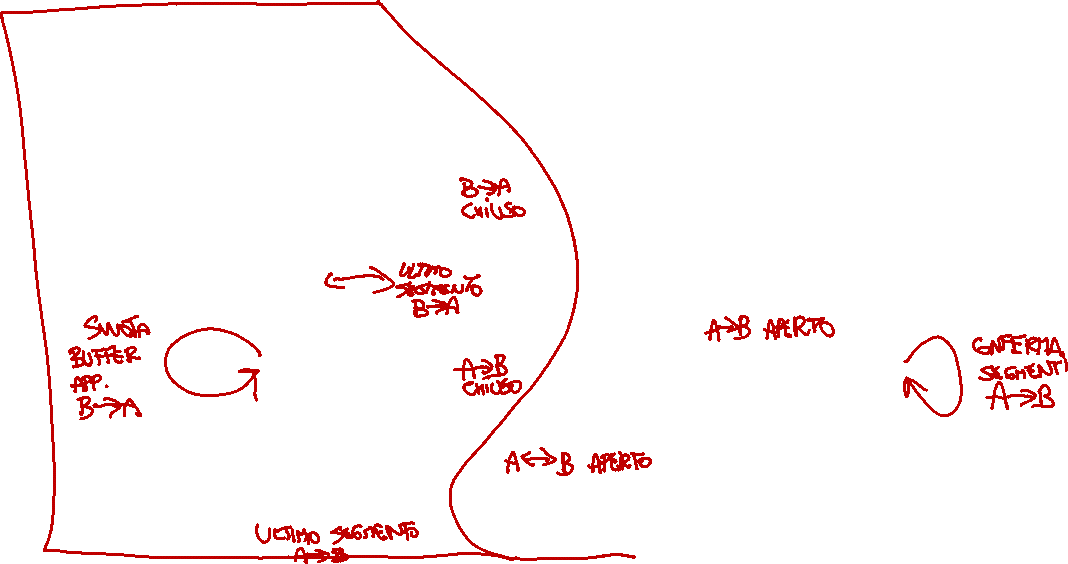 B→A
CHIUSO
ULTIMO
SEGMENTO
B→A
SVUOTA
BUFFER
APP.
B→A
A→B
CHIUSO
A→B APERTO
CONFERMA
SEGMENTI
A→B
A↔B APERTO
ULTIMO SEGMENTO
A→B